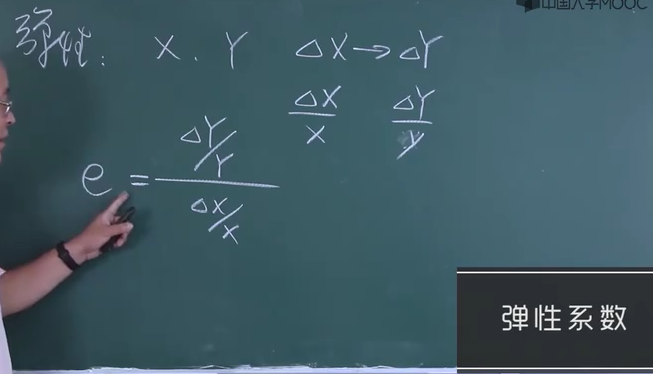 中国大学MOOC
弹性: X、Y ΔX→ΔY
ΔX/X ΔY/Y
e = (ΔY/Y)/(ΔX/X)
弹性系数